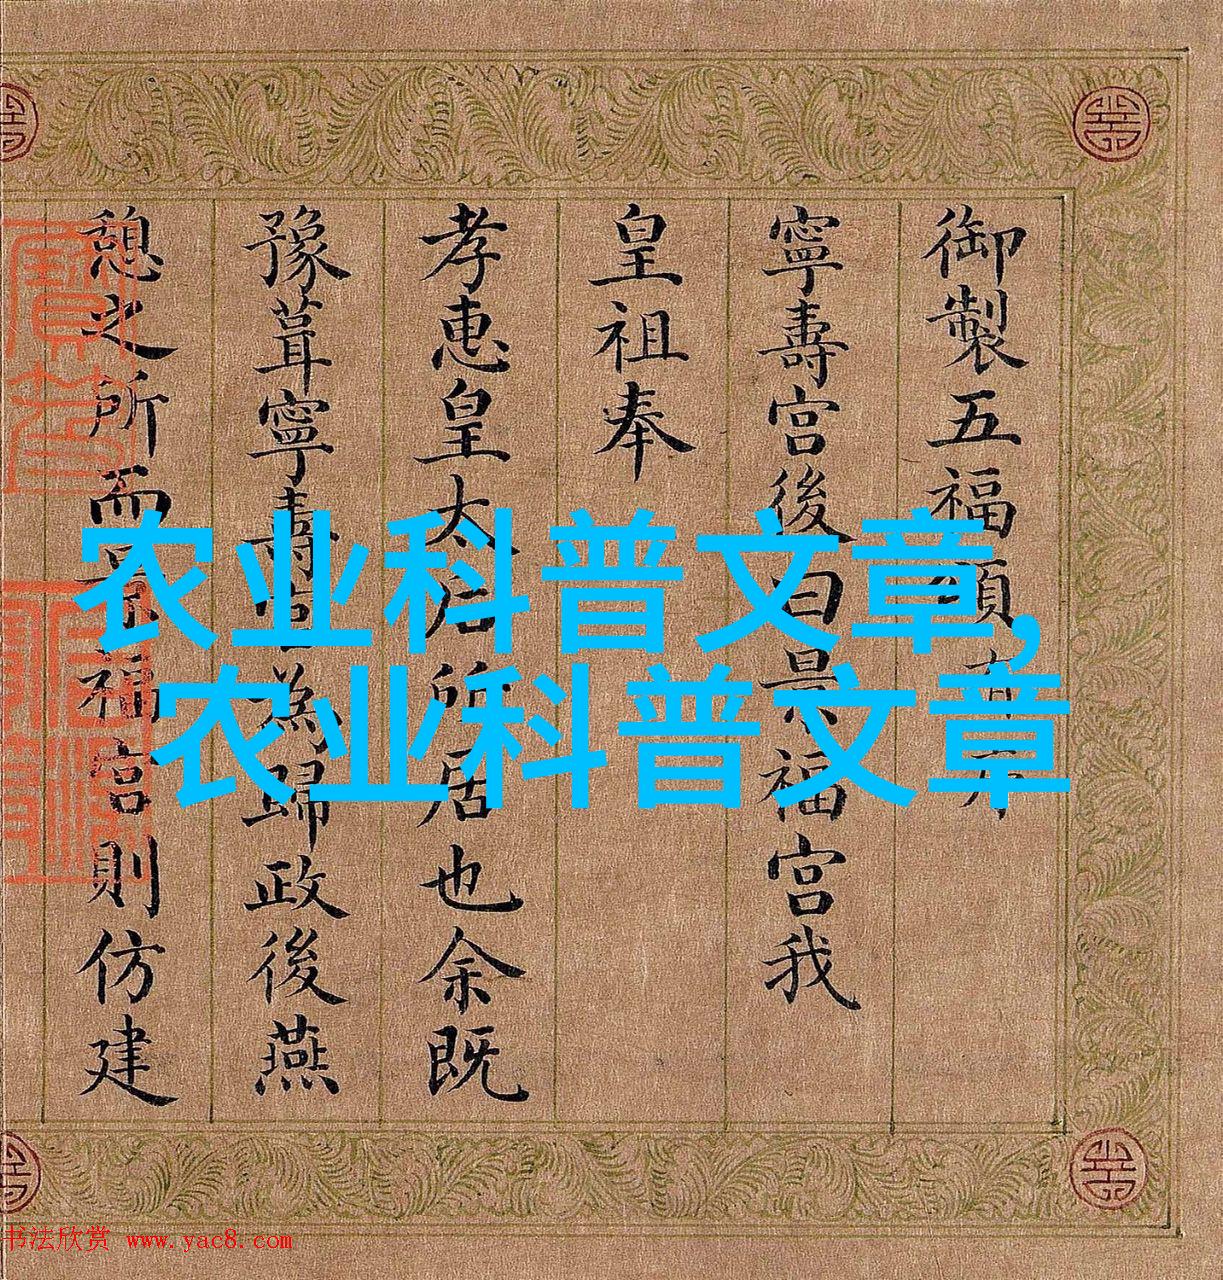 御製五福頌有
寧壽宮後曰景福宮我
皇祖奉
孝惠皇太后所居也余既
豫葺寧壽宮為歸政後燕
憩之所而景福宮則仿建
农业科普文章,
农业科普文章
书法欣赏 www.yac8.com